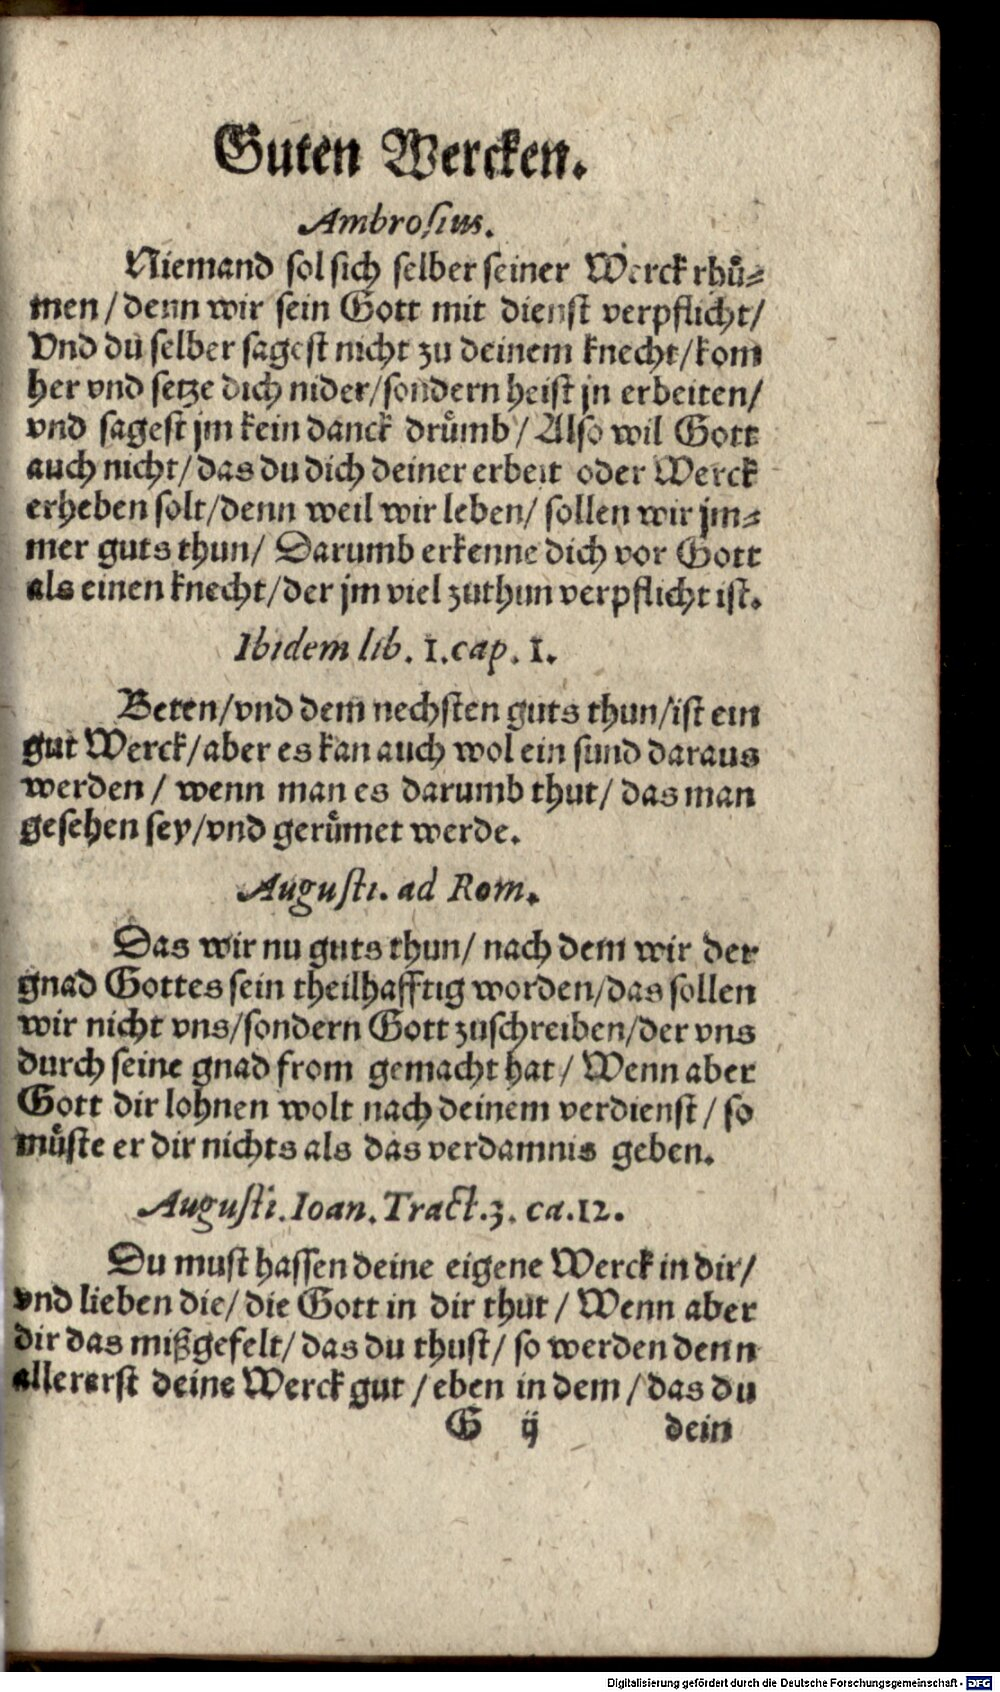 Guten Wercken.
Ambrosius.
Niemand sol sich selber seiner Werck rhuͤ-
men / denn wir sein Gott mit dienst verpflicht /
Vnd du selber sagest nicht zu deinem knecht / kom
her vnd setze dich nider / sondern heist jn erbeiten /
vnd sagest jm kein danck druͤmb / Also wil Gott
auch nicht / das du dich deiner erbeit oder Werck
erheben solt / denn weil wir leben / sollen wir jm-
mer guts thun / Darumb erkenne dich vor Gott
als einen knecht / der jm viel zuthun verpflicht ist.
Ibidem lib. 1. cap. 1.
Beten / vnd dem nechsten guts thun / ist ein
gut Werck / aber es kan auch wol ein sund daraus
werden / wenn man es darumb thut / das man
gesehen sey / vnd geruͤmet werde.
Augusti. ad Rom.
Das wir nu guts thun / nach dem wir der
gnad Gottes sein theilhafftig worden / das sollen
wir nicht vns / sondern Gott zuschreiben / der vns
durch seine gnad from gemacht hat / Wenn aber
Gott dir lohnen wolt nach deinem verdienst / so
muͤste er dir nichts als das verdamnis geben.
Augusti. Ioan. Tract. 3. ca. 12.
Du must hassen deine eigene Werck in dir /
vnd lieben die / die Gott in dir thut / Wenn aber
dir das mißgefelt / das du thust / so werden denn
allererst deine Werck gut / eben in dem / das du
G ij dein
Digitalisierung gefördert durch die Deutsche Forschungsgemeinschaft - DFG